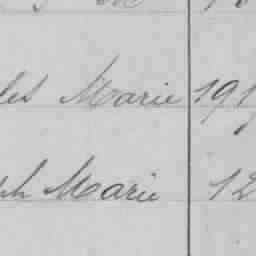 les Marie 191
ph Marie 12